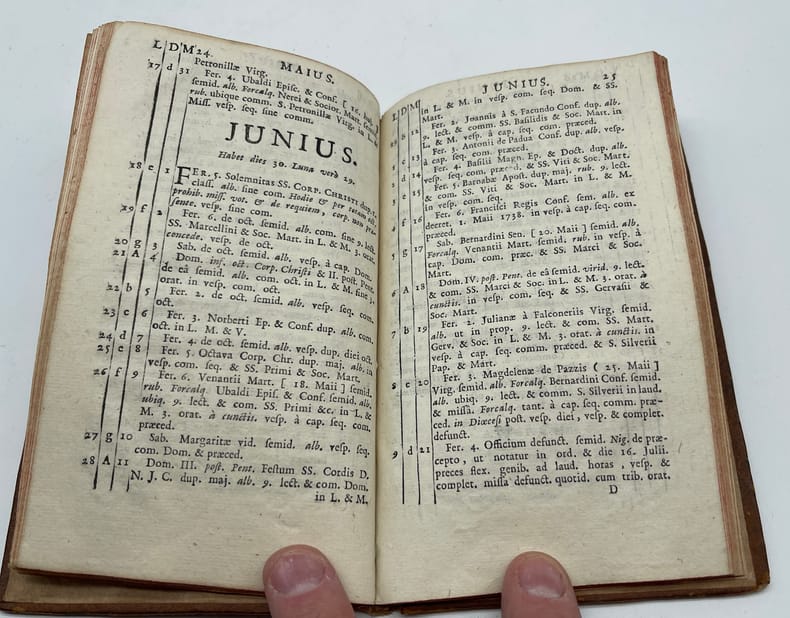 L D M 24 MAIUS.
Petronillæ Virg.
17 d 31 Fer. 4. Ubaldi Episc. & Conf. [ 16.
semid. alb. Forcalq. Nerei & Socior. Mart. semid.
rub. ubique comm. S. Petronillæ Virg. in L. &
Miss. vesp. seq. sine comm.
JUNIUS.
Habet dies 30. Luna verò 29.
18 e 1 FER. 5. Solemnitas SS. CORP. CHRISTI dup. 1.
class. alb. sine com. Hodie & per totam oct.
prohib. miss. vot. & de requiem, corp. non præ-
sente. vesp. sine com.
19 f 2 Fer. 6. de oct. semid. alb. com. sine 9. lect.
SS. Marcellini & Soc. Mart. in L. & M. 3. orat.
concede. vesp. de oct.
20 g 3 Sab. de oct. semid. alb. vesp. à cap. Dom.
21 A 4 Dom. inf. oct. Corp. Christi & II. post. Pent.
de eâ semid. alb. com. oct. in L. & M. sine 3.
orat. in vesp. com. oct.
22 b 5 Fer. 2. de oct. semid. alb. vesp. seq. com.
oct.
23 c 6 Fer. 3. Norberti Ep. & Conf. dup. alb. com.
oct. in L. M. & V.
24 d 7 Fer. 4. de oct. semid. alb. vesp. dup. diei oct.
25 e 8 Fer. 5. Octava Corp. Chr. dup. maj. alb. in
vesp. com. seq. & SS. Primi & Soc. Mart.
26 f 9 Fer. 6. Venantii Mart. [ 18. Maii ] semid.
rub. Forcalq. Ubaldi Epis. & Conf. semid. alb.
ubiq. 9. lect. & com. SS. Primi &c. in L. &
M. 3. orat. à cunctis. vesp. à cap. seq. com.
præced.
27 g 10 Sab. Margaritæ vid. semid. alb. vesp. seq.
com. Dom. & præced.
28 A 11 Dom. III. post. Pent. Festum SS. Cordis D.
N. J. C. dup. maj. alb. 9. lect. & com. Dom.
in L. & M.
L D M JUNIUS. 25
in L. & M. in vesp. com. seq. Dom. & SS.
Mart.
b 12 Fer. 2. Joannis à S. Facundo Conf. dup. alb.
9. lect. & comm. SS. Basilidis & Soc. Mart. in
L. & M. vesp. à cap. seq. com. præced.
c 13 Fer. 3. Antonii de Padua Conf. dup. alb. vesp.
à cap. seq. com. præced.
d 14 Fer. 4. Basilii Magn. Ep. & Doct. dup. alb.
vesp. seq. com. præced. & SS. Viti & Soc. Mart.
e 15 Fer. 5. Barnabæ Apost. dup. maj. rub. 9. lect.
& com. SS. Viti & Soc. Mart. in L. & M.
in vesp. com. seq.
f 16 Fer. 6. Francisci Regis Conf. sem. alb. ex
decret. 1. Maii 1738. in vesp. à cap. seq. com.
præced.
5 g 17 Sab. Bernardini Sen. [ 20. Maii ] semid. alb.
Forcalq. Venantii Mart. semid. rub. in vesp. à
cap. Dom. com. præc. & SS. Marci & Soc.
Mart.
6 A 18 Dom. IV. post. Pent. de eâ semid. virid. 9. lect.
& com. SS. Marci & Soc. in L. & M. 3. orat. à
cunctis. in vesp. com. seq. & SS. Gervasii &
Soc. Mart.
7 b 19 Fer. 2. Julianæ à Falconeriis Virg. semid.
alb. ut in prop. 9. lect. & com. SS. Mart.
Gerv. & Soc. in L. & M. 3. orat. à cunctis. in
vesp. à cap. seq. comm. præced. & S. Silverii
Pap. & Mart.
8 c 20 Fer. 3. Magdelenæ de Pazzis ( 25. Maii ]
Virg. semid. alb. Forcalq. Bernardini Conf. semid.
alb. ubiq. 9. lect. & comm. S. Silverii in laud.
& missâ. Forcalq. tant. à cap. seq. comm. præ-
ced. in Diœcesi post. vesp. diei, vesp. & complet.
defunct.
9 d 21 Fer. 4. Officium defunct. semid. Nig. de præ-
cepto, ut notatur in ord. & die 16. Julii.
preces flex. genib. ad laud. horas, vesp. &
complet. missa defunct. quotid. cum trib. orat.
D